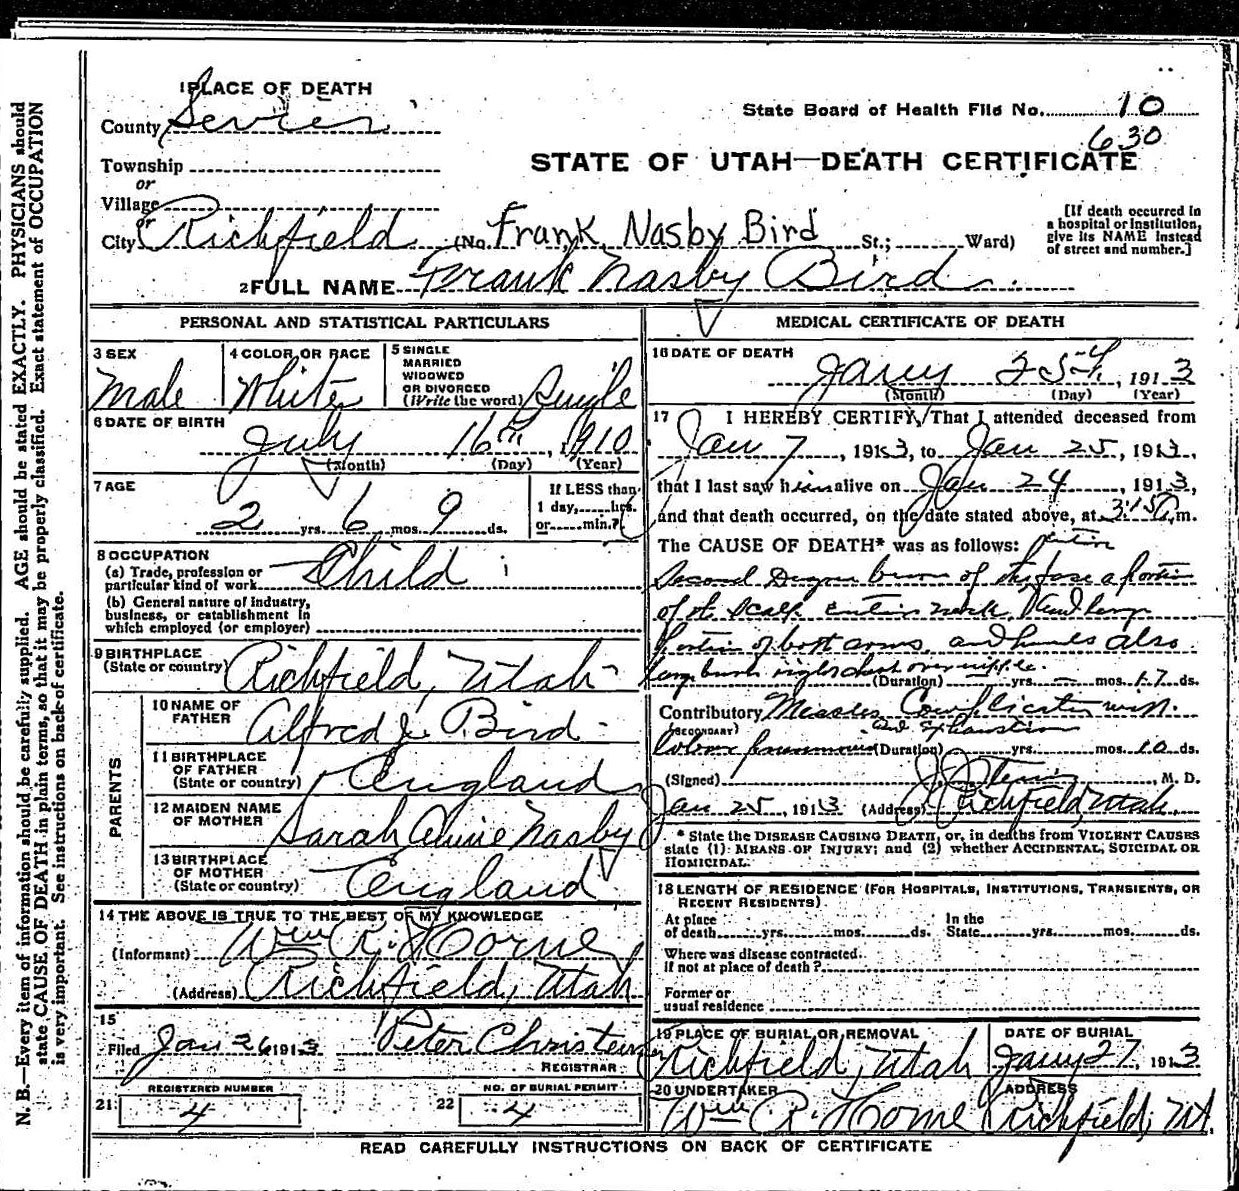 1 PLACE OF DEATH
County Sevier
State Board of Health File No. 10
630
Township
or
Village
or
City Richfield (No. Frank Nasby Bird St.; Ward)
STATE OF UTAH—DEATH CERTIFICATE
[If death occurred in
a hospital or institution,
give its NAME instead
of street and number.]
2 FULL NAME Frank Nasby Bird
PERSONAL AND STATISTICAL PARTICULARS
3 SEX
Male
4 COLOR OR RACE
White
5 SINGLE
MARRIED
WIDOWED
OR DIVORCED
(Write the word) Single
6 DATE OF BIRTH
July 16th, 1910
(Month) (Day) (Year)
7 AGE
2 yrs. 6 mos. 9 ds.
If LESS than
1 day, hrs.
or min.?
8 OCCUPATION
(a) Trade, profession or
particular kind of work Child
(b) General nature of industry,
business, or establishment in
which employed (or employer)
9 BIRTHPLACE
(State or country) Richfield, Utah
PARENTS
10 NAME OF
FATHER Alfred J. Bird
11 BIRTHPLACE
OF FATHER
(State or country) England
12 MAIDEN NAME
OF MOTHER Sarah Annie Nasby
13 BIRTHPLACE
OF MOTHER
(State or country) England
14 THE ABOVE IS TRUE TO THE BEST OF MY KNOWLEDGE
(Informant) Wm R. Horne
(Address) Richfield, Utah
15
Filed Jan 26 1913 Peter Christensen
REGISTRAR
REGISTERED NUMBER
21 4
NO. OF BURIAL PERMIT
22 4
MEDICAL CERTIFICATE OF DEATH
16 DATE OF DEATH
Jany 25th, 1913
(Month) (Day) (Year)
17 I HEREBY CERTIFY, That I attended deceased from
Jan 7, 1913, to Jan 25, 1913,
that I last saw him alive on Jan 24, 1913,
and that death occurred, on the date stated above, at 3:15 a.m.
The CAUSE OF DEATH* was as follows: entire
Second Degree burn of the face a portion
of the scalp entire neck, and large
portion of both arms, and hands also
large burn right chest over nipple.
(Duration) yrs. mos. 17 ds.
Contributory Measles Complicated with
(SECONDARY) and Exhaustion
lobar pneumonia (Duration) yrs. mos. 10 ds.
(Signed) M. D.
Jan 25, 1913 (Address) Richfield, Utah.
* State the DISEASE CAUSING DEATH, or, in deaths from VIOLENT CAUSES
state (1) MEANS OF INJURY; and (2) whether ACCIDENTAL, SUICIDAL OR
HOMICIDAL.
18 LENGTH OF RESIDENCE (FOR HOSPITALS, INSTITUTIONS, TRANSIENTS, OR
RECENT RESIDENTS)
At place
of death yrs. mos. ds.
In the
State yrs. mos. ds.
Where was disease contracted
if not at place of death?
Former or
usual residence
19 PLACE OF BURIAL OR REMOVAL
Richfield, Utah
DATE OF BURIAL
Jany 27, 1913
20 UNDERTAKER
Wm R. Horne
ADDRESS
Richfield, Ut.
READ CAREFULLY INSTRUCTIONS ON BACK OF CERTIFICATE
N. B.—Every item of information should be carefully supplied. AGE should be stated EXACTLY. PHYSICIANS should
state CAUSE OF DEATH in plain terms, so that it may be properly classified. Exact statement of OCCUPATION
is very important. See instructions on back of certificate.